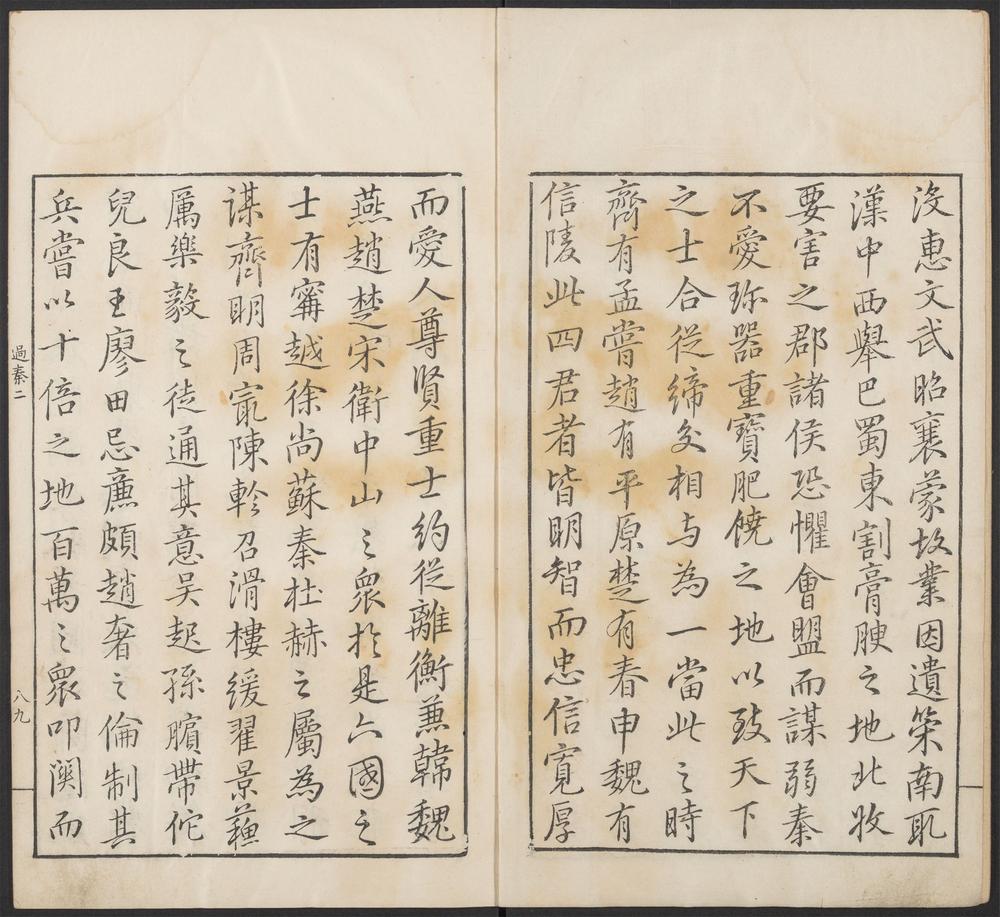 没惠文武昭襄蒙故業因遺策南取
漢中西舉巴蜀東割膏腴之地北收
要害之郡諸侯恐懼會盟而謀弱秦
不愛珎器重寶肥饒之地以致天下
之士合從締交相与為一當此之時
齊有孟嘗趙有平原楚有春申魏有
信陵此四君者皆明智而忠信寬厚
而愛人尊賢重士約從離衡兼韓魏
燕趙楚宋衛中山之眾於是六國之
士有甯越徐尚蘇秦杜赫之屬為之
謀齊明周㝡陳軫召滑樓緩翟景蘓
厲樂毅之徒通其意吴起孫臏帶佗
兒良王廖田忌廉頗趙奢之倫制其
兵嘗以十倍之地百萬之眾叩関而
過秦二
八九